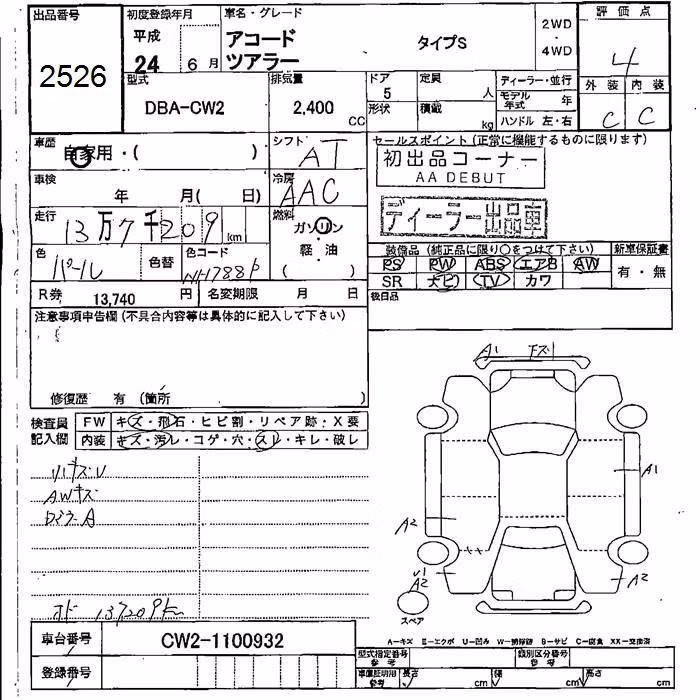 出品番号
2526
初度登録年月
平成
24 6月
車名・グレード
アコード
ツアラー
タイプS
2WD
・
4WD
評価点
4
外装 内装
C C
型式
DBA-CW2
排気量
2,400
CC
ドア
5
定員
人
形状
積載
kg
ディーラー・並行
モデル年式 年
ハンドル 左・右
車歴
自家用・( )
シフト
AT
セールスポイント(正常に機能するものに限ります)
初出品コーナー
AA DEBUT
ディーラー出品車
車検
年 月( 日)
冷房
AAC
走行
13万7千209
km
燃料
ガソリン
軽・油
( )
色
パール
色替
色コード
NH788P
装備品(純正品に限り○をつけて下さい)
PS PW ABS エアB AW
SR ナビ TV カワ
新車保証書
有・無
R券
13,740 円
名変期限 月 日
後日品
注意事項申告欄(不具合内容等は具体的に記入して下さい)
修復歴 有(箇所 )
検査員
記入欄
FW キズ・飛石・ヒビ割・リペア跡・X要
内装 キズ・汚レ・コゲ・穴・スレ・キレ・破レ
AWキズ
A1
A1
A2
A2
A2
スペア
A-キズ E-エクボ U-凹み W-補修跡 S-サビ C-腐食 XX-交換済
137209km
車台番号
CW2-1100932
登録番号
型式指定番号
参考
類別区分番号
参考
車庫証明用
参考
長さ cm
幅 cm
高さ cm